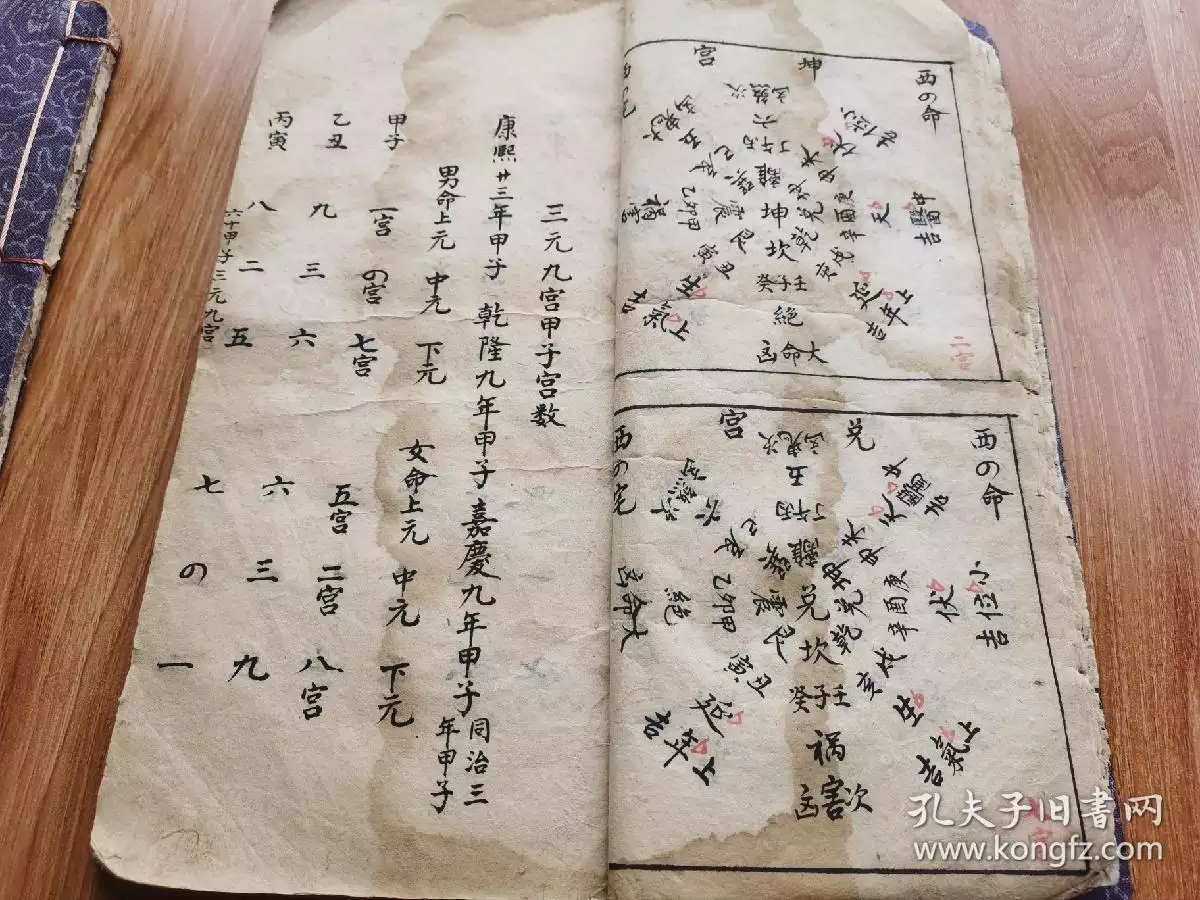 西の命
坤宮
二宮
中醫吉
天
上年吉
延
庚酉辛
戌亥
乾兌坤
離
坤
坎
壬子癸
絕
大命凶
六
次煞凶
震
艮
甲卯乙
丑寅
生
西の命
兌宮
小位吉
伏
上氣吉
生
庚酉辛
戌亥
乾兌坤
離
兌
坎
壬子癸
禍
次害凶
五
震
艮
甲卯乙
丑寅
絕
大命凶
延
上年吉
西の宅
三元九宮甲子宮数
康熙廿三年甲子 乾隆九年甲子 嘉慶九年甲子 同治三年甲子
男命上元 中元 下元 女命上元 中元 下元
甲子 一宮 の宮 七宮 五宮 二宮 八宮
乙丑 九 三 六 六 三 九
丙寅 八 二 五 七 の 一
六十甲子三元九宮
孔夫子旧書网
www.kongfz.com